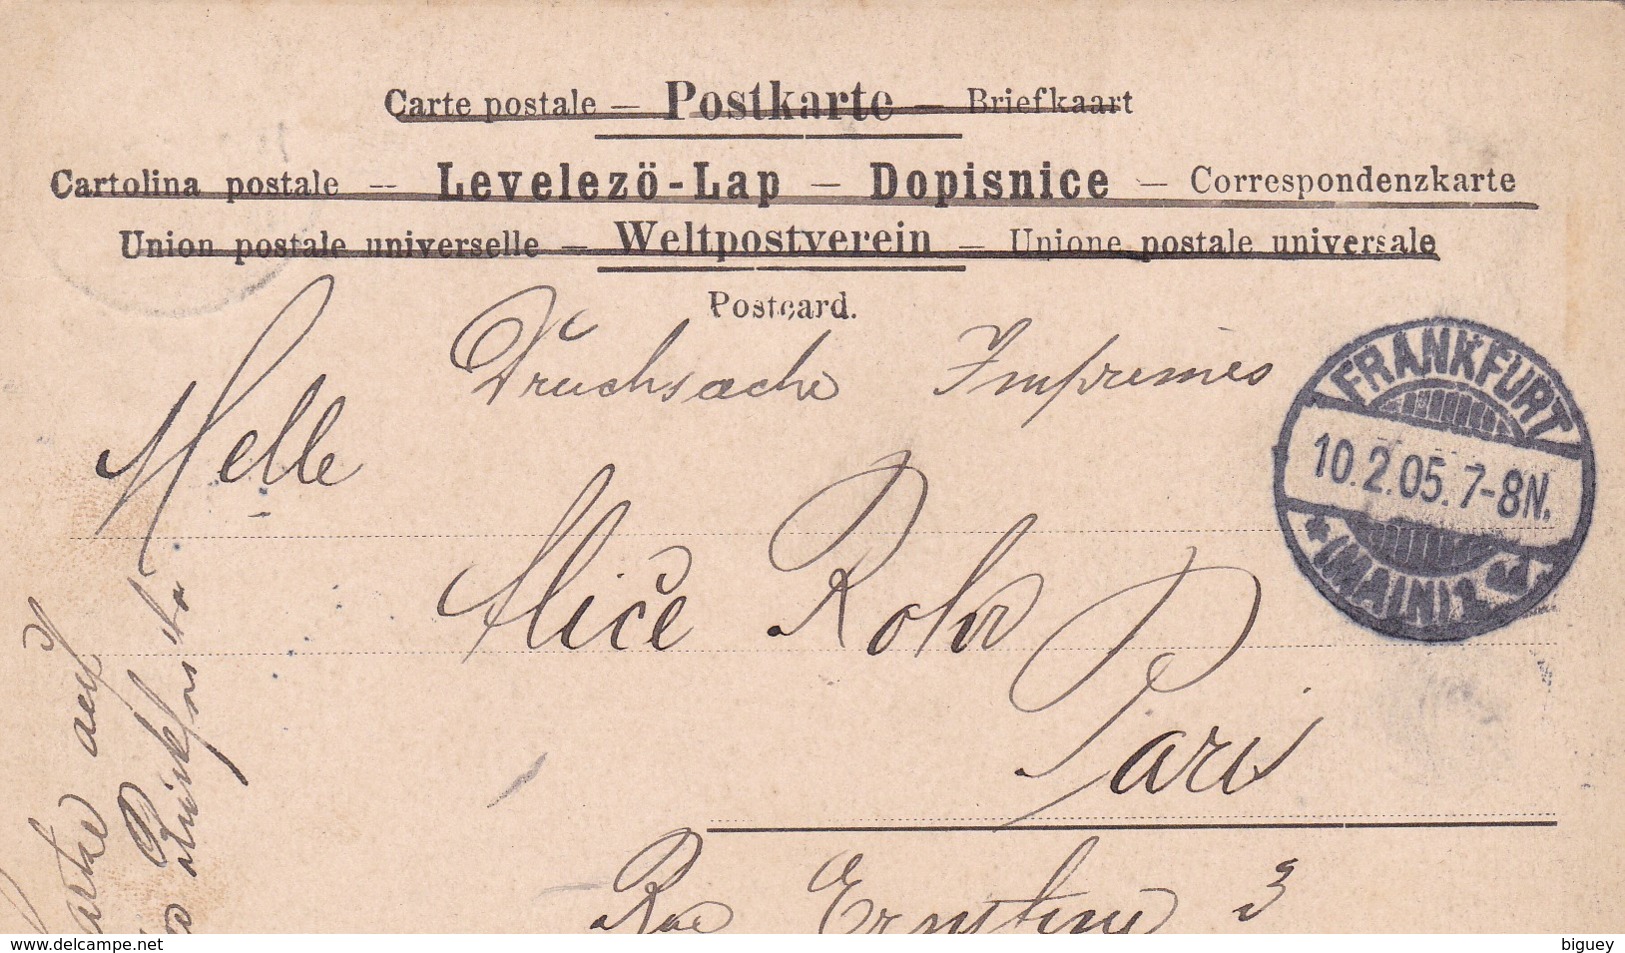 Carte postale — Postkarte — Briefkaart
Cartolina postale — Levelezö-Lap — Dopisnice — Correspondenzkarte
Union postale universelle — Weltpostverein — Unione postale universale
Postcard.
Drucksache Imprimés
FRANKFURT
10.2.05.7-8N.
* (MAIN) 1
Melle
Alice Rohr
Paris
Rue Ernestine 3
Karte auf
delcampe.net
biguey